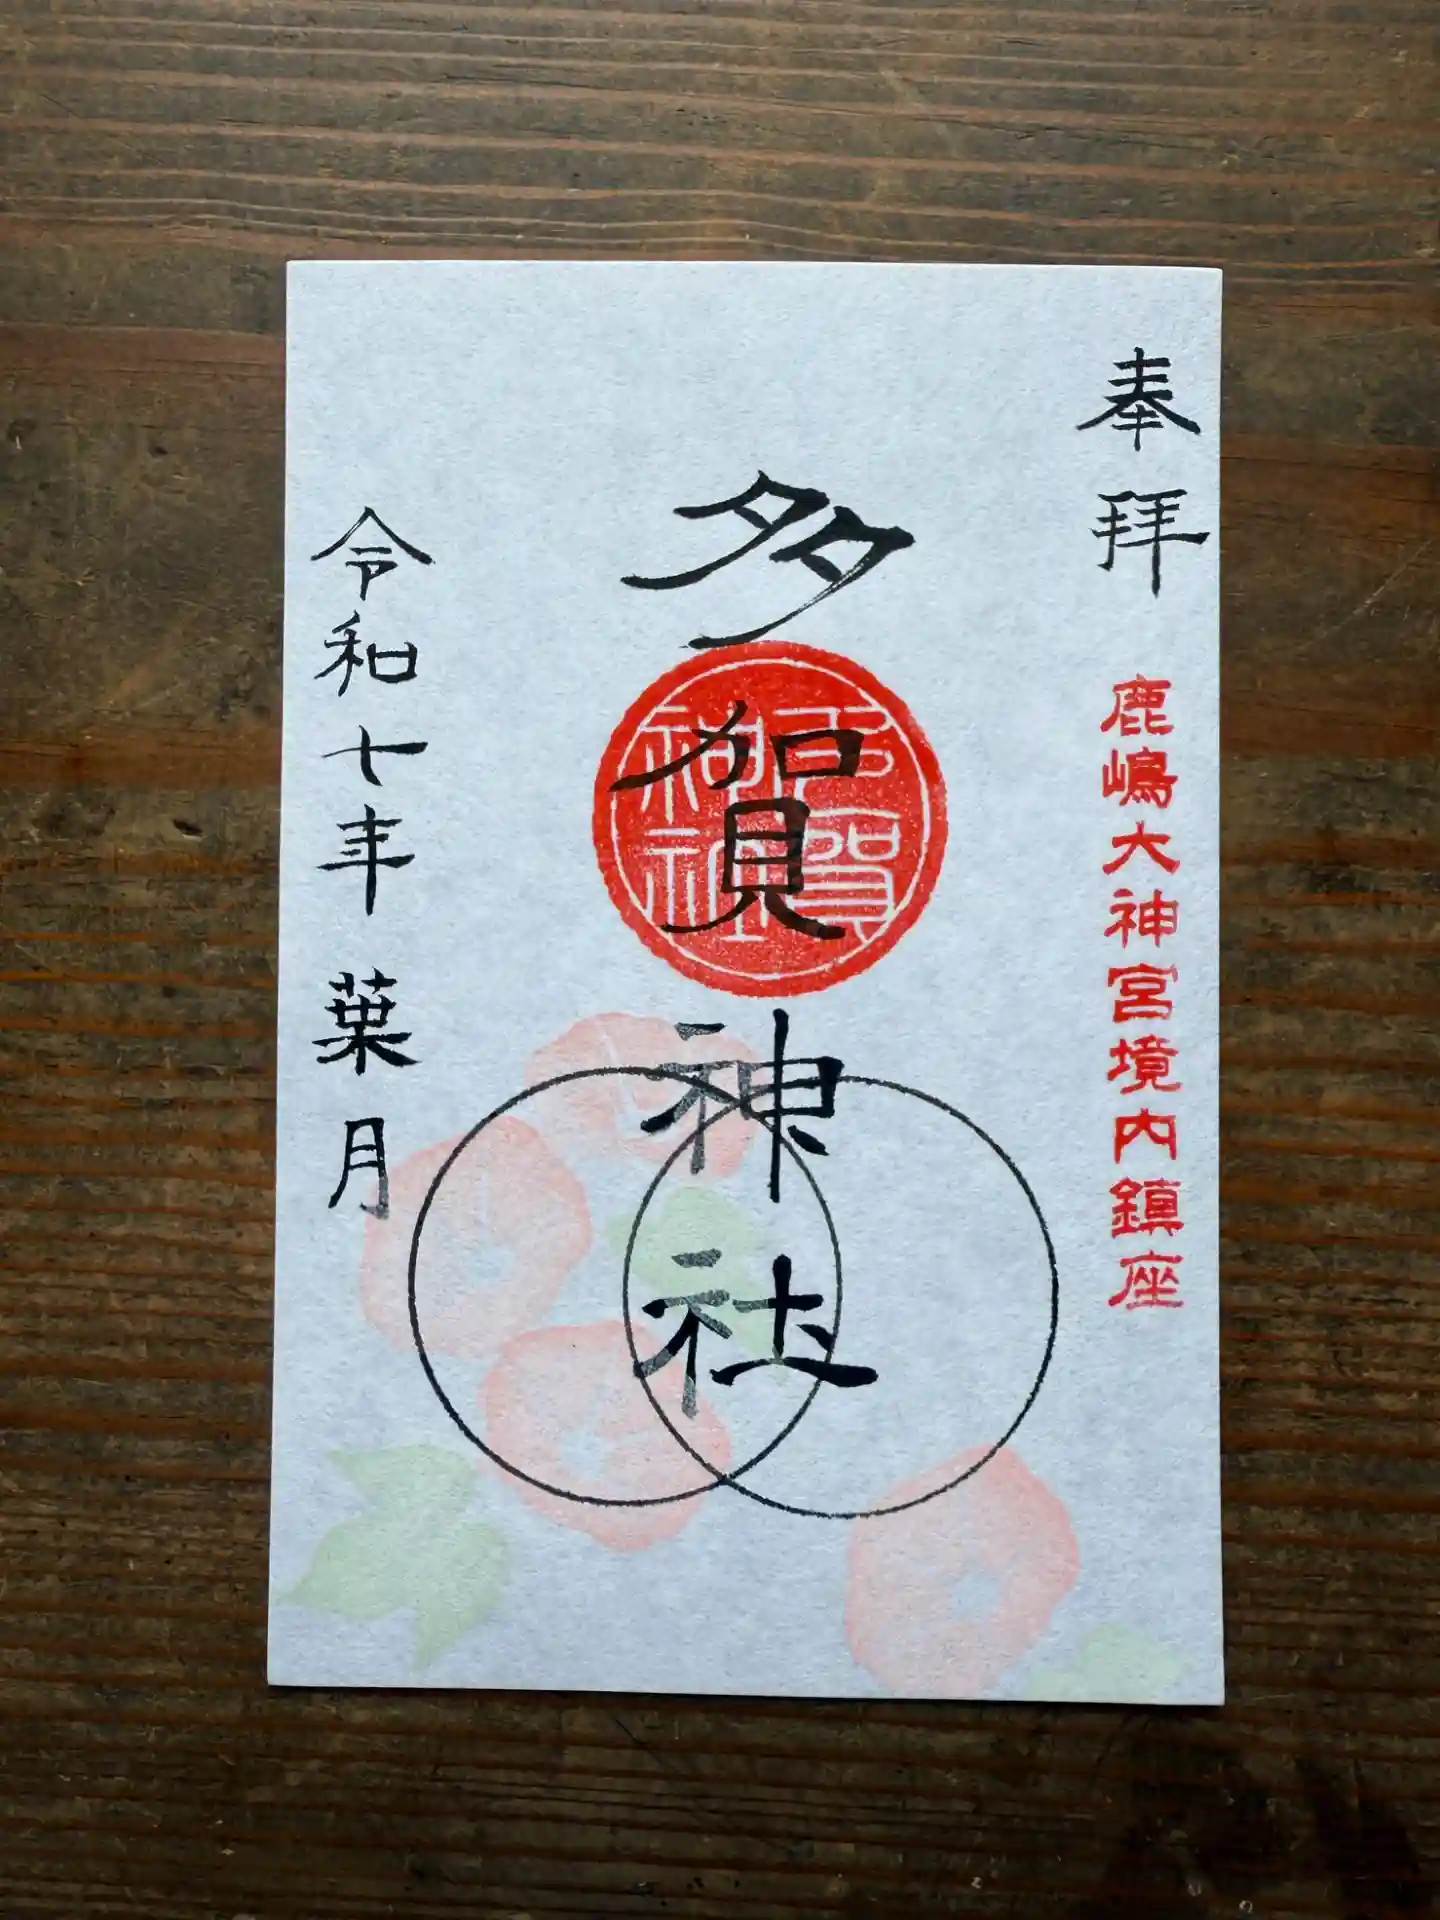 奉拝
鹿嶋大神宮境内鎮座
多賀神社
多賀神社
令和七年葉月